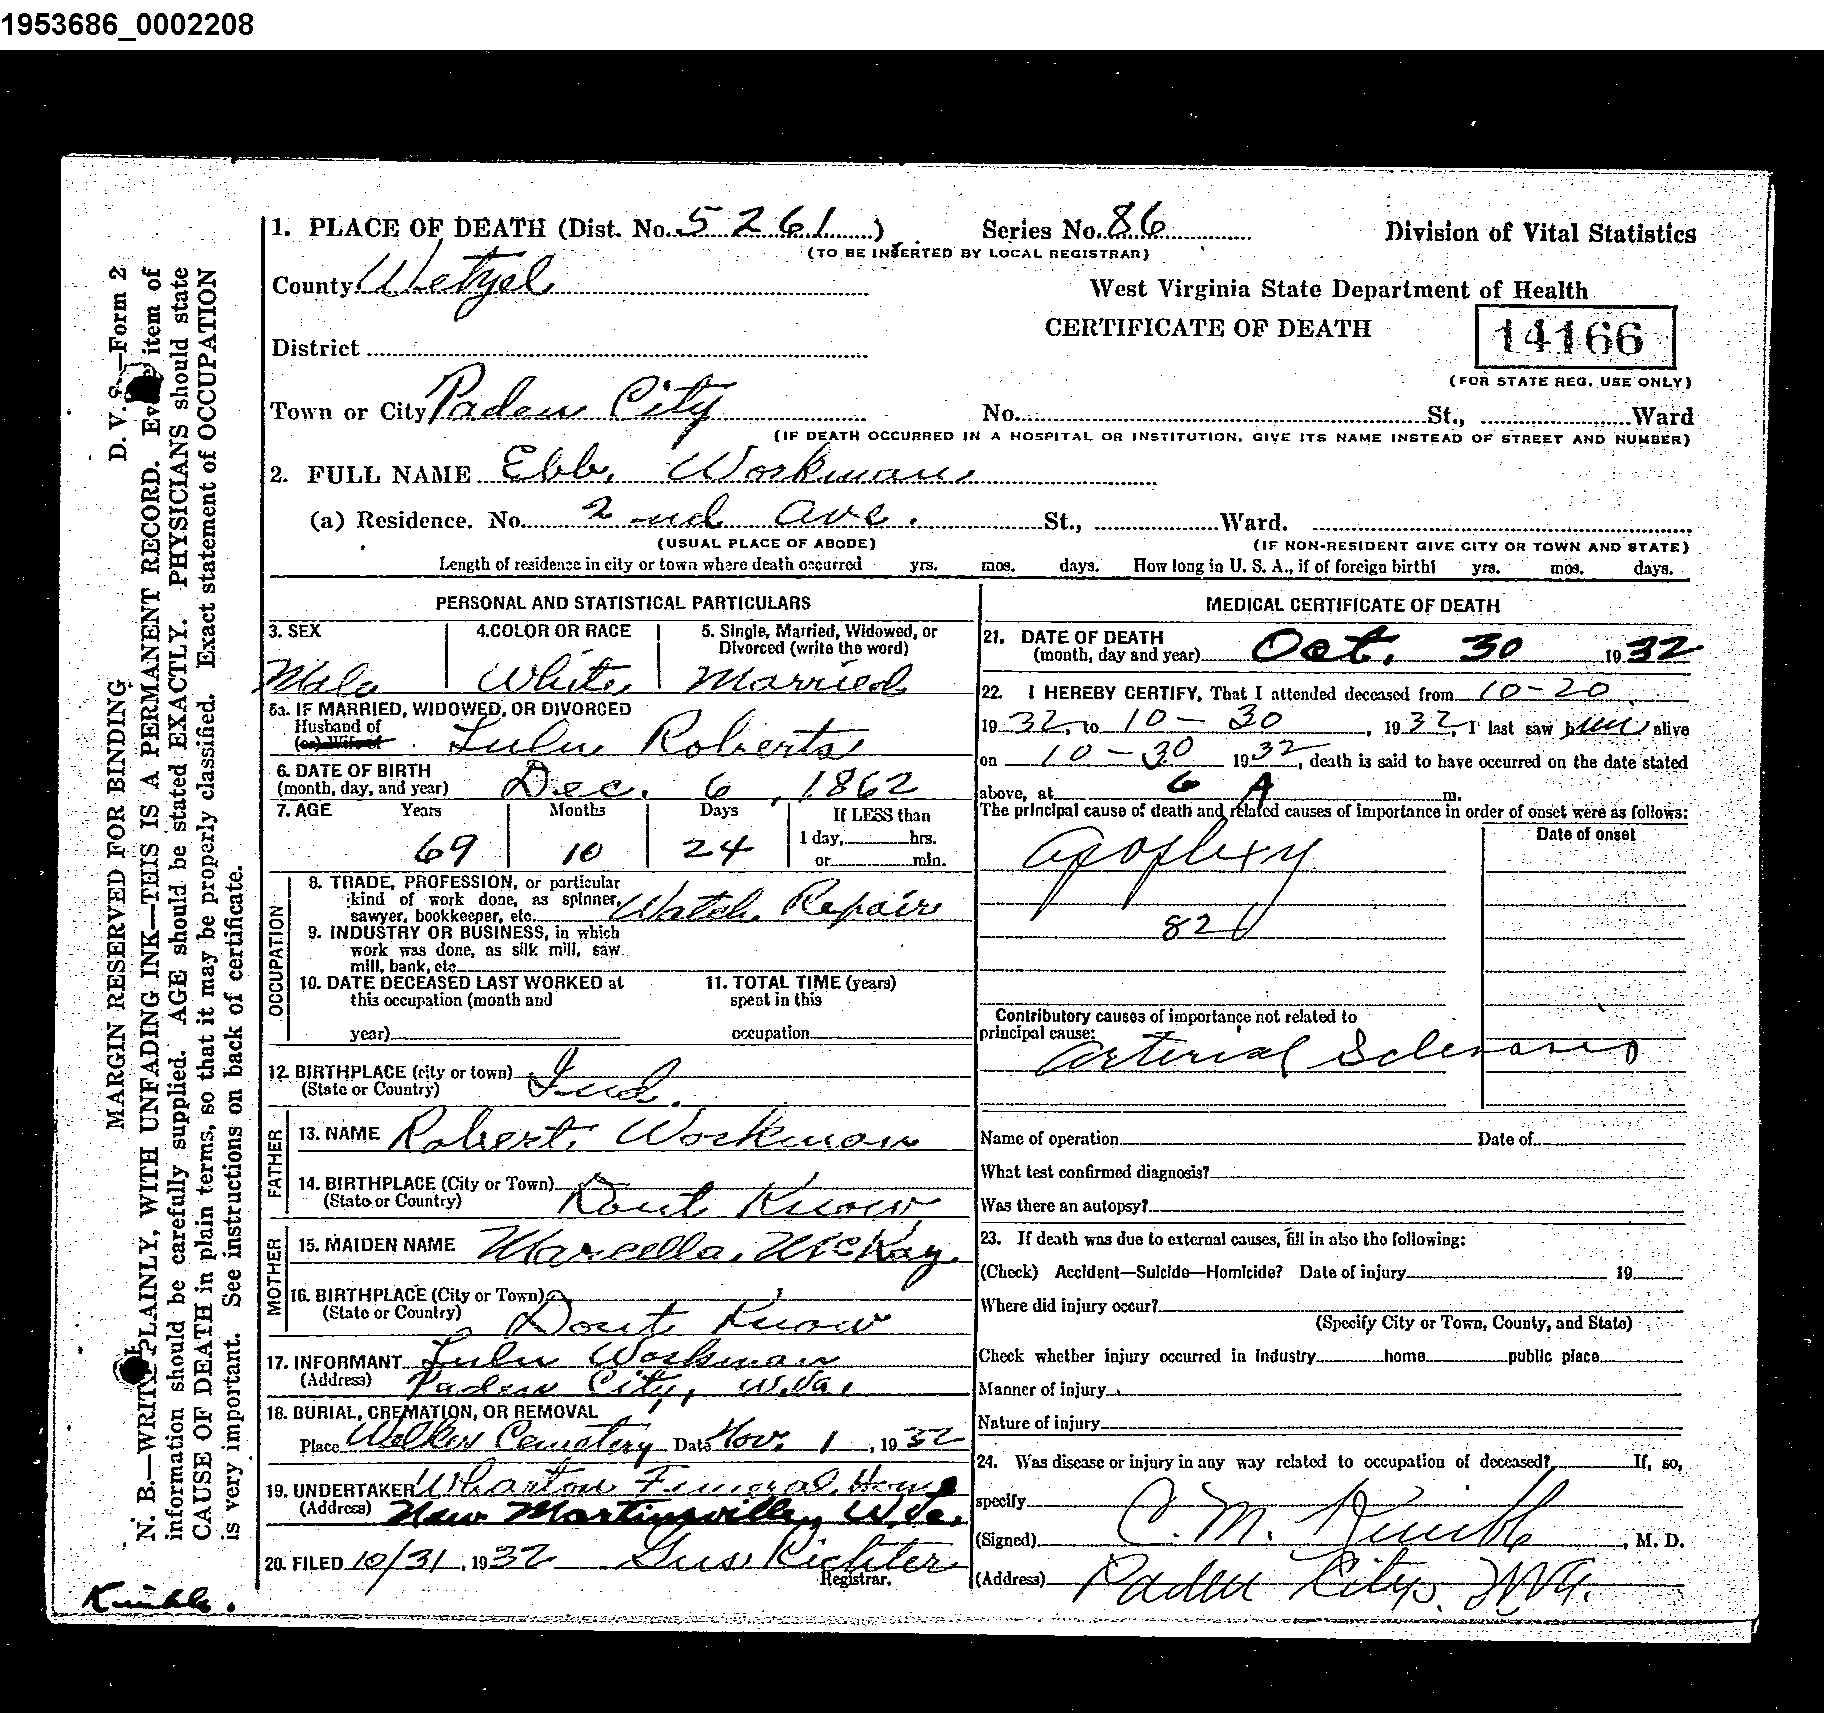 1953686_0002208
1. PLACE OF DEATH (Dist. No. 5261) Series No. 86 Division of Vital Statistics
(TO BE INSERTED BY LOCAL REGISTRAR)
County Wetzel
West Virginia State Department of Health
CERTIFICATE OF DEATH 14166
District
(FOR STATE REG. USE ONLY)
Town or City Paden City No. St., Ward
(IF DEATH OCCURRED IN A HOSPITAL OR INSTITUTION, GIVE ITS NAME INSTEAD OF STREET AND NUMBER)
2. FULL NAME Ebb. Workman
(a) Residence. No. 2nd Ave. St., Ward.
(USUAL PLACE OF ABODE) (IF NON-RESIDENT GIVE CITY OR TOWN AND STATE)
Length of residence in city or town where death occurred yrs. mos. days. How long in U. S. A., if of foreign birth? yrs. mos. days.
PERSONAL AND STATISTICAL PARTICULARS
3. SEX 4. COLOR OR RACE 5. Single, Married, Widowed, or
Divorced (write the word)
Male White Married
5a. IF MARRIED, WIDOWED, OR DIVORCED
Husband of
(or) Wife of Lulu Roberts
6. DATE OF BIRTH
(month, day, and year) Dec. 6, 1862
7. AGE Years Months Days If LESS than
69 10 24 1 day, hrs.
or min.
OCCUPATION
8. TRADE, PROFESSION, or particular
kind of work done, as spinner,
sawyer, bookkeeper, etc. Watch Repair
9. INDUSTRY OR BUSINESS, in which
work was done, as silk mill, saw
mill, bank, etc
10. DATE DECEASED LAST WORKED at 11. TOTAL TIME (years)
this occupation (month and spent in this
year) occupation
12. BIRTHPLACE (city or town)
(State or Country) Ind.
FATHER
13. NAME Robert Workman
14. BIRTHPLACE (City or Town)
(State or Country) Dont Know
MOTHER
15. MAIDEN NAME Marcella McKay
16. BIRTHPLACE (City or Town)
(State or Country) Dont Know
17. INFORMANT Lulu Workman
(Address) Paden City, W.Va.
18. BURIAL, CREMATION, OR REMOVAL
Place Cemetery Date Nov. 1, 1932
19. UNDERTAKER Wharton Funeral Home
(Address) New Martinsville, W.Va.
20. FILED 10/31, 1932 Gus Richter
Registrar.
MEDICAL CERTIFICATE OF DEATH
21. DATE OF DEATH
(month, day and year) Oct. 30 1932
22. I HEREBY CERTIFY, That I attended deceased from 10-20
1932, to 10-30, 1932, I last saw him alive
on 10-30 1932, death is said to have occurred on the date stated
above, at 6 A m.
The principal cause of death and related causes of importance in order of onset were as follows:
Date of onset
Apoplexy
Contributory causes of importance not related to
principal cause:
Arterial Sclerosis
Name of operation Date of
What test confirmed diagnosis?
Was there an autopsy?
23. If death was due to external causes, fill in also the following:
(Check) Accident—Suicide—Homicide? Date of injury 19
Where did injury occur?
(Specify City or Town, County, and State)
Check whether injury occurred in industry home public place
Manner of injury
Nature of injury
24. Was disease or injury in any way related to occupation of deceased? If, so,
specify
(Signed) C. M. Kimble, M. D.
(Address) Paden City, W.Va.
D. V. S.—Form 2
MARGIN RESERVED FOR BINDING
N. B.—WRITE PLAINLY, WITH UNFADING INK—THIS IS A PERMANENT RECORD. Every item of
information should be carefully supplied. AGE should be stated EXACTLY. PHYSICIANS should state
CAUSE OF DEATH in plain terms, so that it may be properly classified. Exact statement of OCCUPATION
is very important. See instructions on back of certificate.
Kimble.